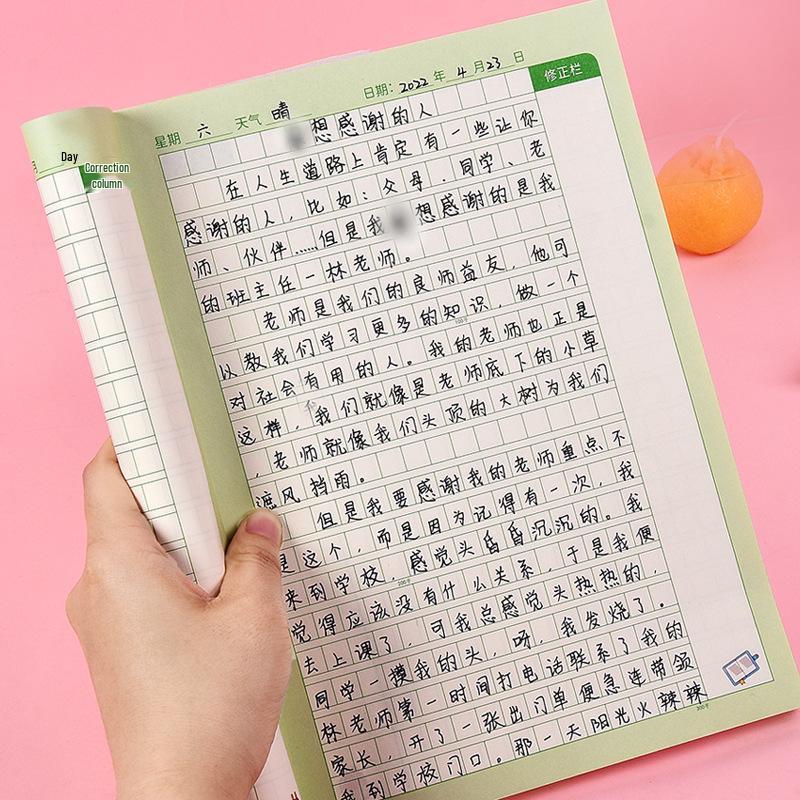 Day
Correction
column
星期 六 天气 晴 日期：2022 年 4 月 23 日
修正栏
想感谢的人
在人生道路上肯定有一些让你
感谢的人，比如：父母、同学、老
师、伙伴……但是我 想感谢的是我
的班主任一林老师。
老师是我们的良师益友，他可
以教我们学习更多的知识，做一个
对社会有用的人。我的老师也正是
这样，我们就像是老师底下的小草
，老师就像我们头顶的大树为我们
遮风挡雨。
但是我要感谢我的老师重点不
是这个，而是因为记得有一次，我
来到学校，感觉头昏昏沉沉的。我
觉得应该没有什么关系，于是我便
去上课了，可我总感觉头热热的，
同学一摸我的头，呀，我发烧了。
林老师第一时间打电话联系了我的
家长，开了一张出门单便急连带领
我到学校门口。那一天阳光火辣辣
100字
200字
300字